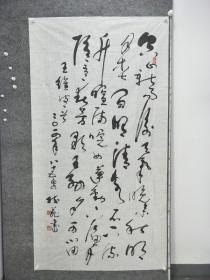 空山新雨後天氣晚来秋明
月松间照清泉石上流
竹喧归浣女莲动下渔舟
随意春芳歇王孙自可留
王维诗
二〇一四年八十
书